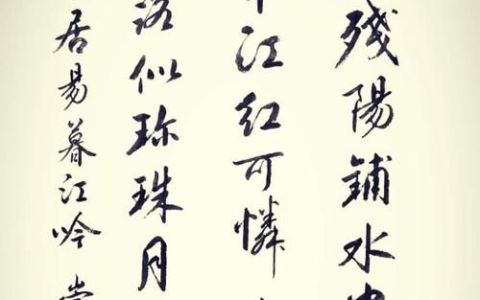 殘陽鋪水中
半江紅可憐
露似珍珠月
居易暮江吟